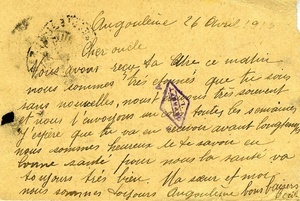 Angoulême 26 Avril 1915
Cher oncle
Nous avons reçu ta lettre ce matin
nous sommes très étonés que tu sois
sans nouvelles, nous très souvent
et nous t'envoyons un toutes les semaines
j'espère que tu va en recevoir avant longtemps
nous sommes heureux de te savoir en
bonne santé pour nous la santé va
toujours très bien. Ma sœur et moi
nous sommes toujours Angoulême bons baisers